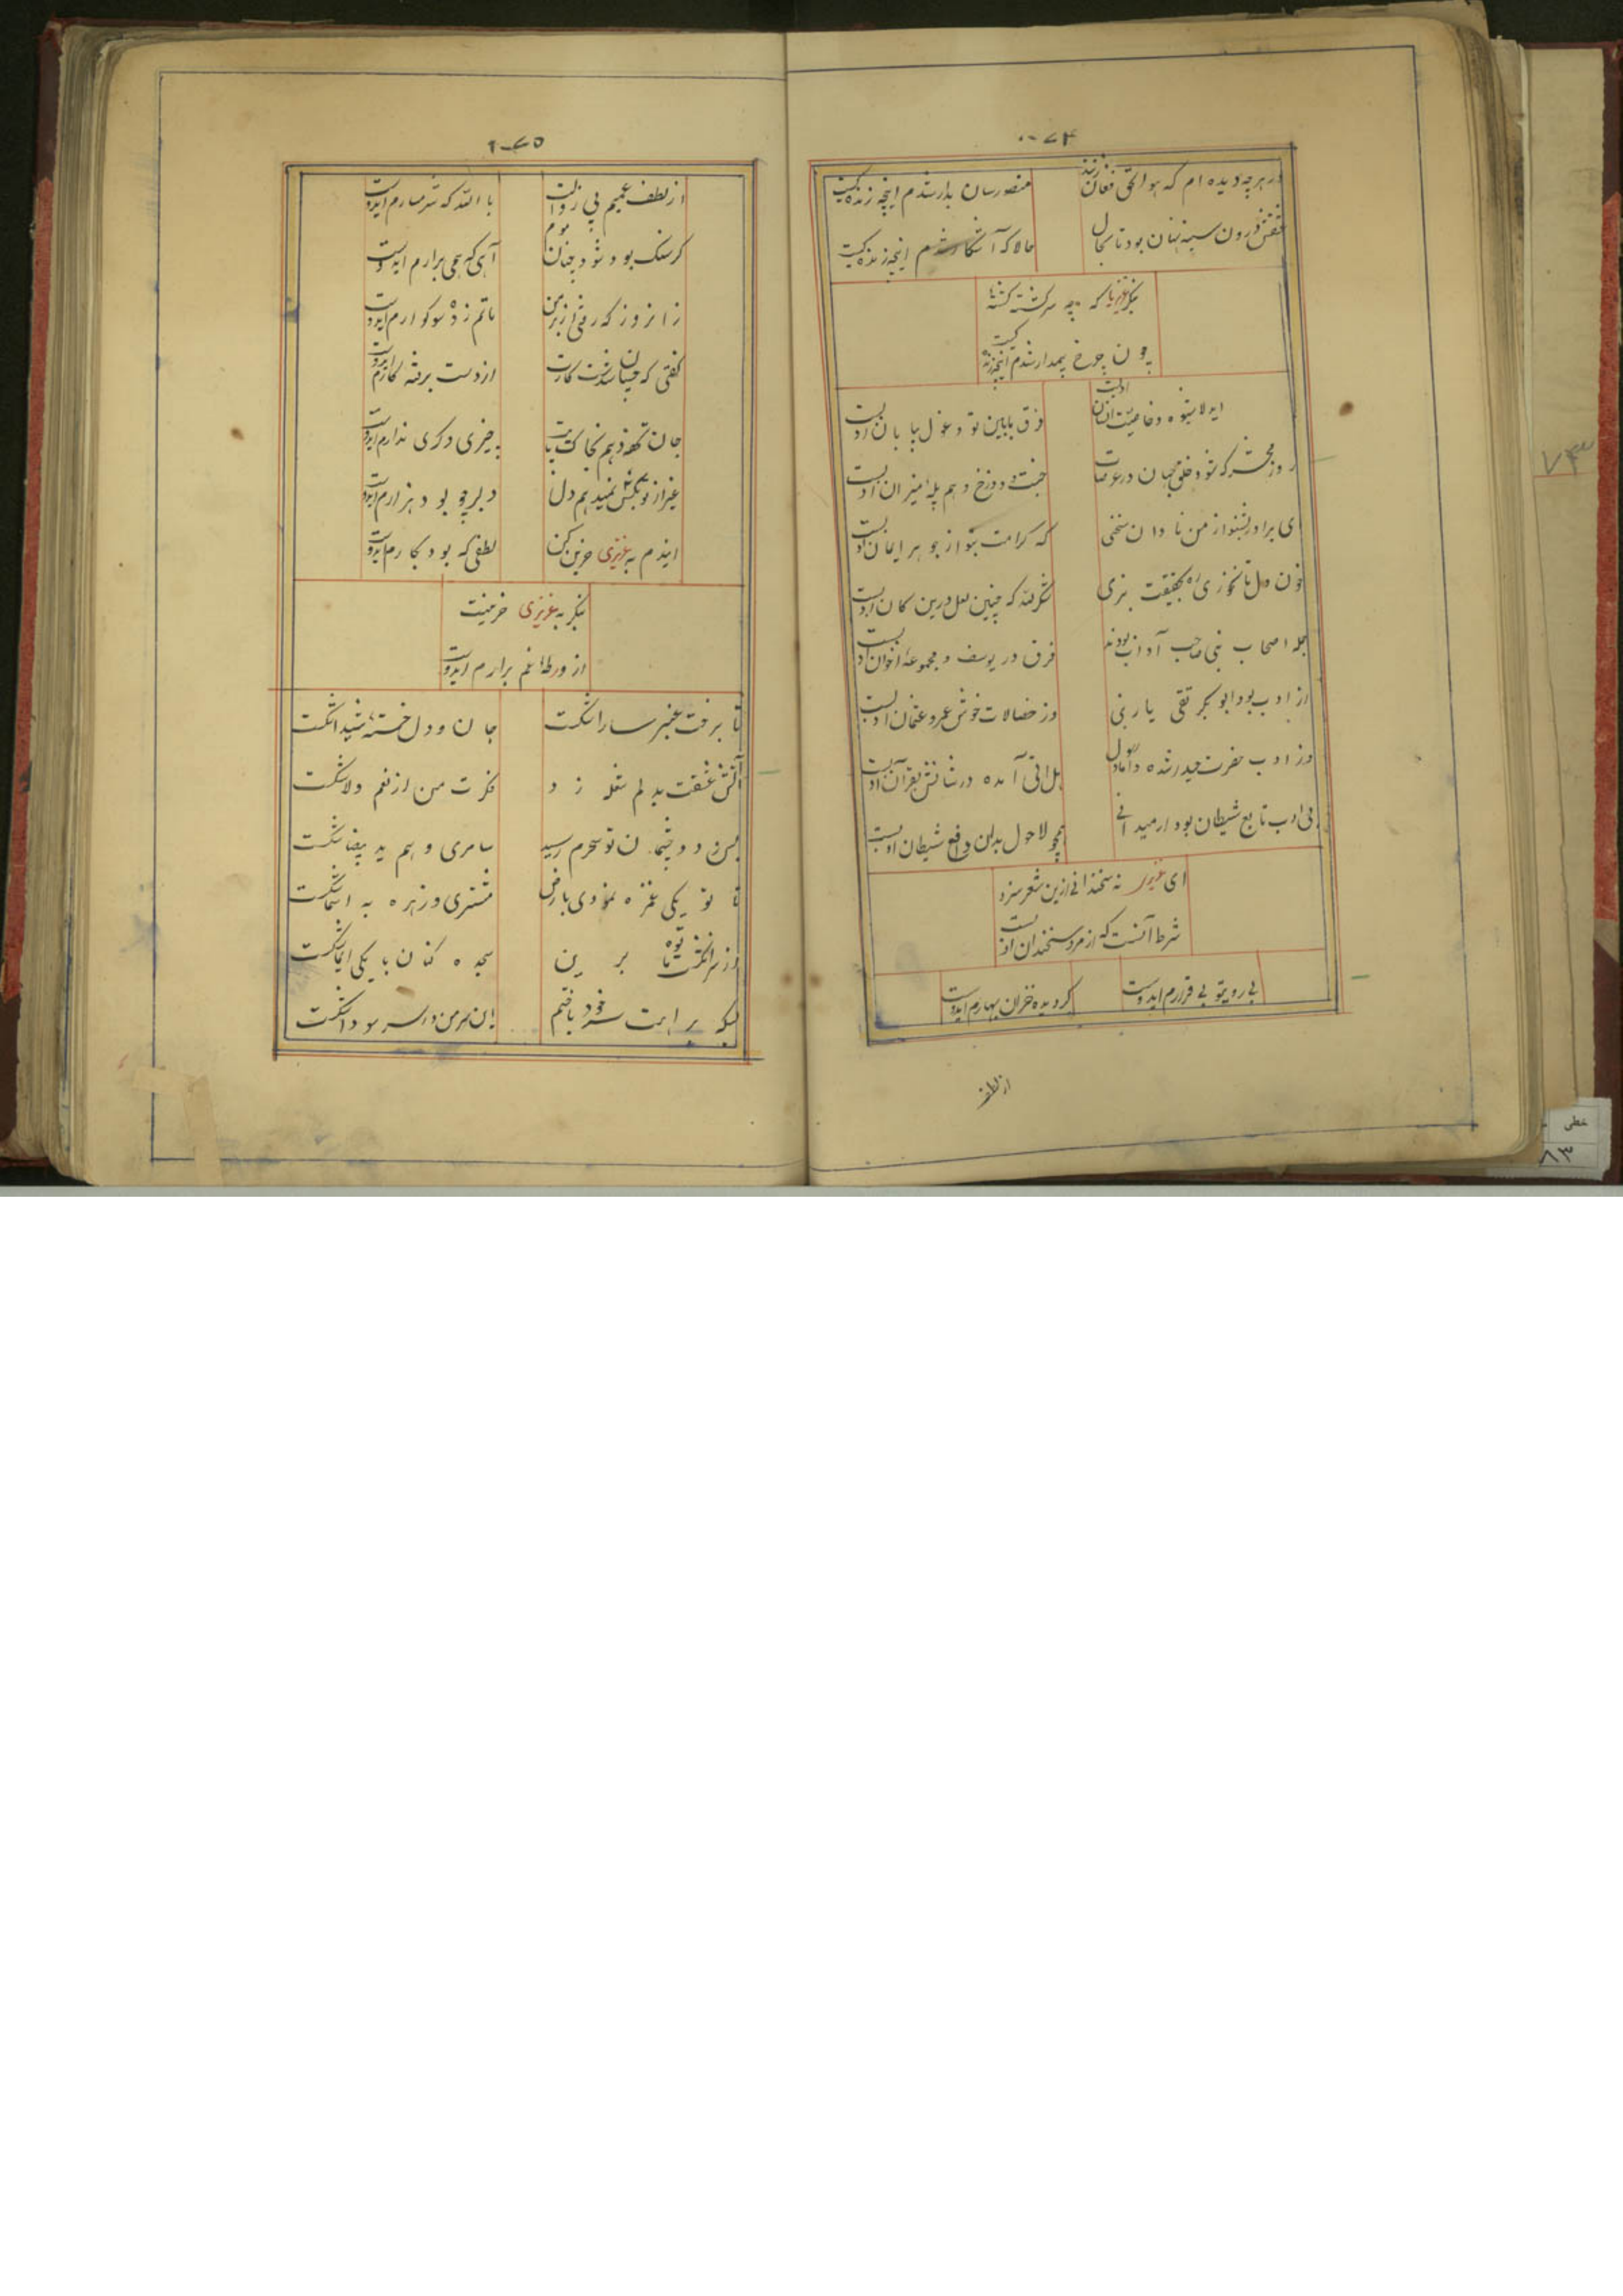 ۰۰۷۴
در هر چه دیده ام که هو الحق فغان زنند
منصور سان بدار شدم اینچه زندگیست
عشقش درون سینه نهان بود تا بحال
حالا که آشکار شدم اینچه زندگیست
بنگر عزیز با که چه سرگشته گشته
چون چرخ بیمدار شدم اینچه زندگیست
ایدلا شیوه و خاصیت انسان ادبست
فرق مابین تو و غول بیابان ادبست
روز محشر که شود خلق جهان در عرصات
جنت و دوزخ و هم پله میزان ادبست
ای برادر بشنو از من نادان سخنی
که کرامت شنو از جوهر ایمان ادبست
خون دل تا نخوری ره بحقیقت نبری
شکر لله که چنین لعل درین کان ادبست
جمله اصحاب نبی صاحب آداب بودند
فرق در یوسف و مجموعه اخوان ادبست
از ادب بود ابوبکر تقی یار نبی
وز خصالات خوش عمر و عثمان ادبست
وز ادب حضرت حیدر شده داماد رسول
هل اتی آمده در شانش بقرآن ادبست
بی ادب تابع شیطان بود ار میدانی
همچو لاحول بدان دافع شیطان ادبست
ای عزیز نه سخندانی ازین شعر سزد
شرط آنست که از مرد سخندان ادبست
بی رویتو بی قرارم ایدوست
گردیده خزان بهارم ایدوست
از لطف
۱۰۷۵
از لطف عمیم بی زوالت
با الله که شرمسارم ایدوست
گر سنک بود شود چنان موم
آهی که همی برارم ایدوست
زانروز که رفتی از بر من
ماتم زده سوکوارم ایدوست
گفتی که چسان شدست کارت
از دست برفته کارم ایدوست
جان تحفه دهم بخاک پایت
چیزی دگری ندارم ایدوست
غیر از تو بکس نمیدهم دل
دلبر چو بود هزارم ایدوست
ایندم به عزیزی حزین کن
لطفی که بود بکارم ایدوست
بنگر به عزیزی حزینت
از ورطه غم برارم ایدوست
تا برخت عنبر سارا شکست
جان و دل خسته شیدا شکست
آتش عشقت بدلم شعله زد
فکرت من از نعم و لا شکست
بس ز دو چشمان تو سحرم رسید
سامری و هم ید بیضا شکست
تا تو یکی غمزه نمودی بارض
مشتری و زهره به اسما شکست
از سر انکشت تو ماه برین
سجده کنان با یکی ایما شکست
بسکه براهت سر خود باختم
این سر من در سر سودا شکست
خطی